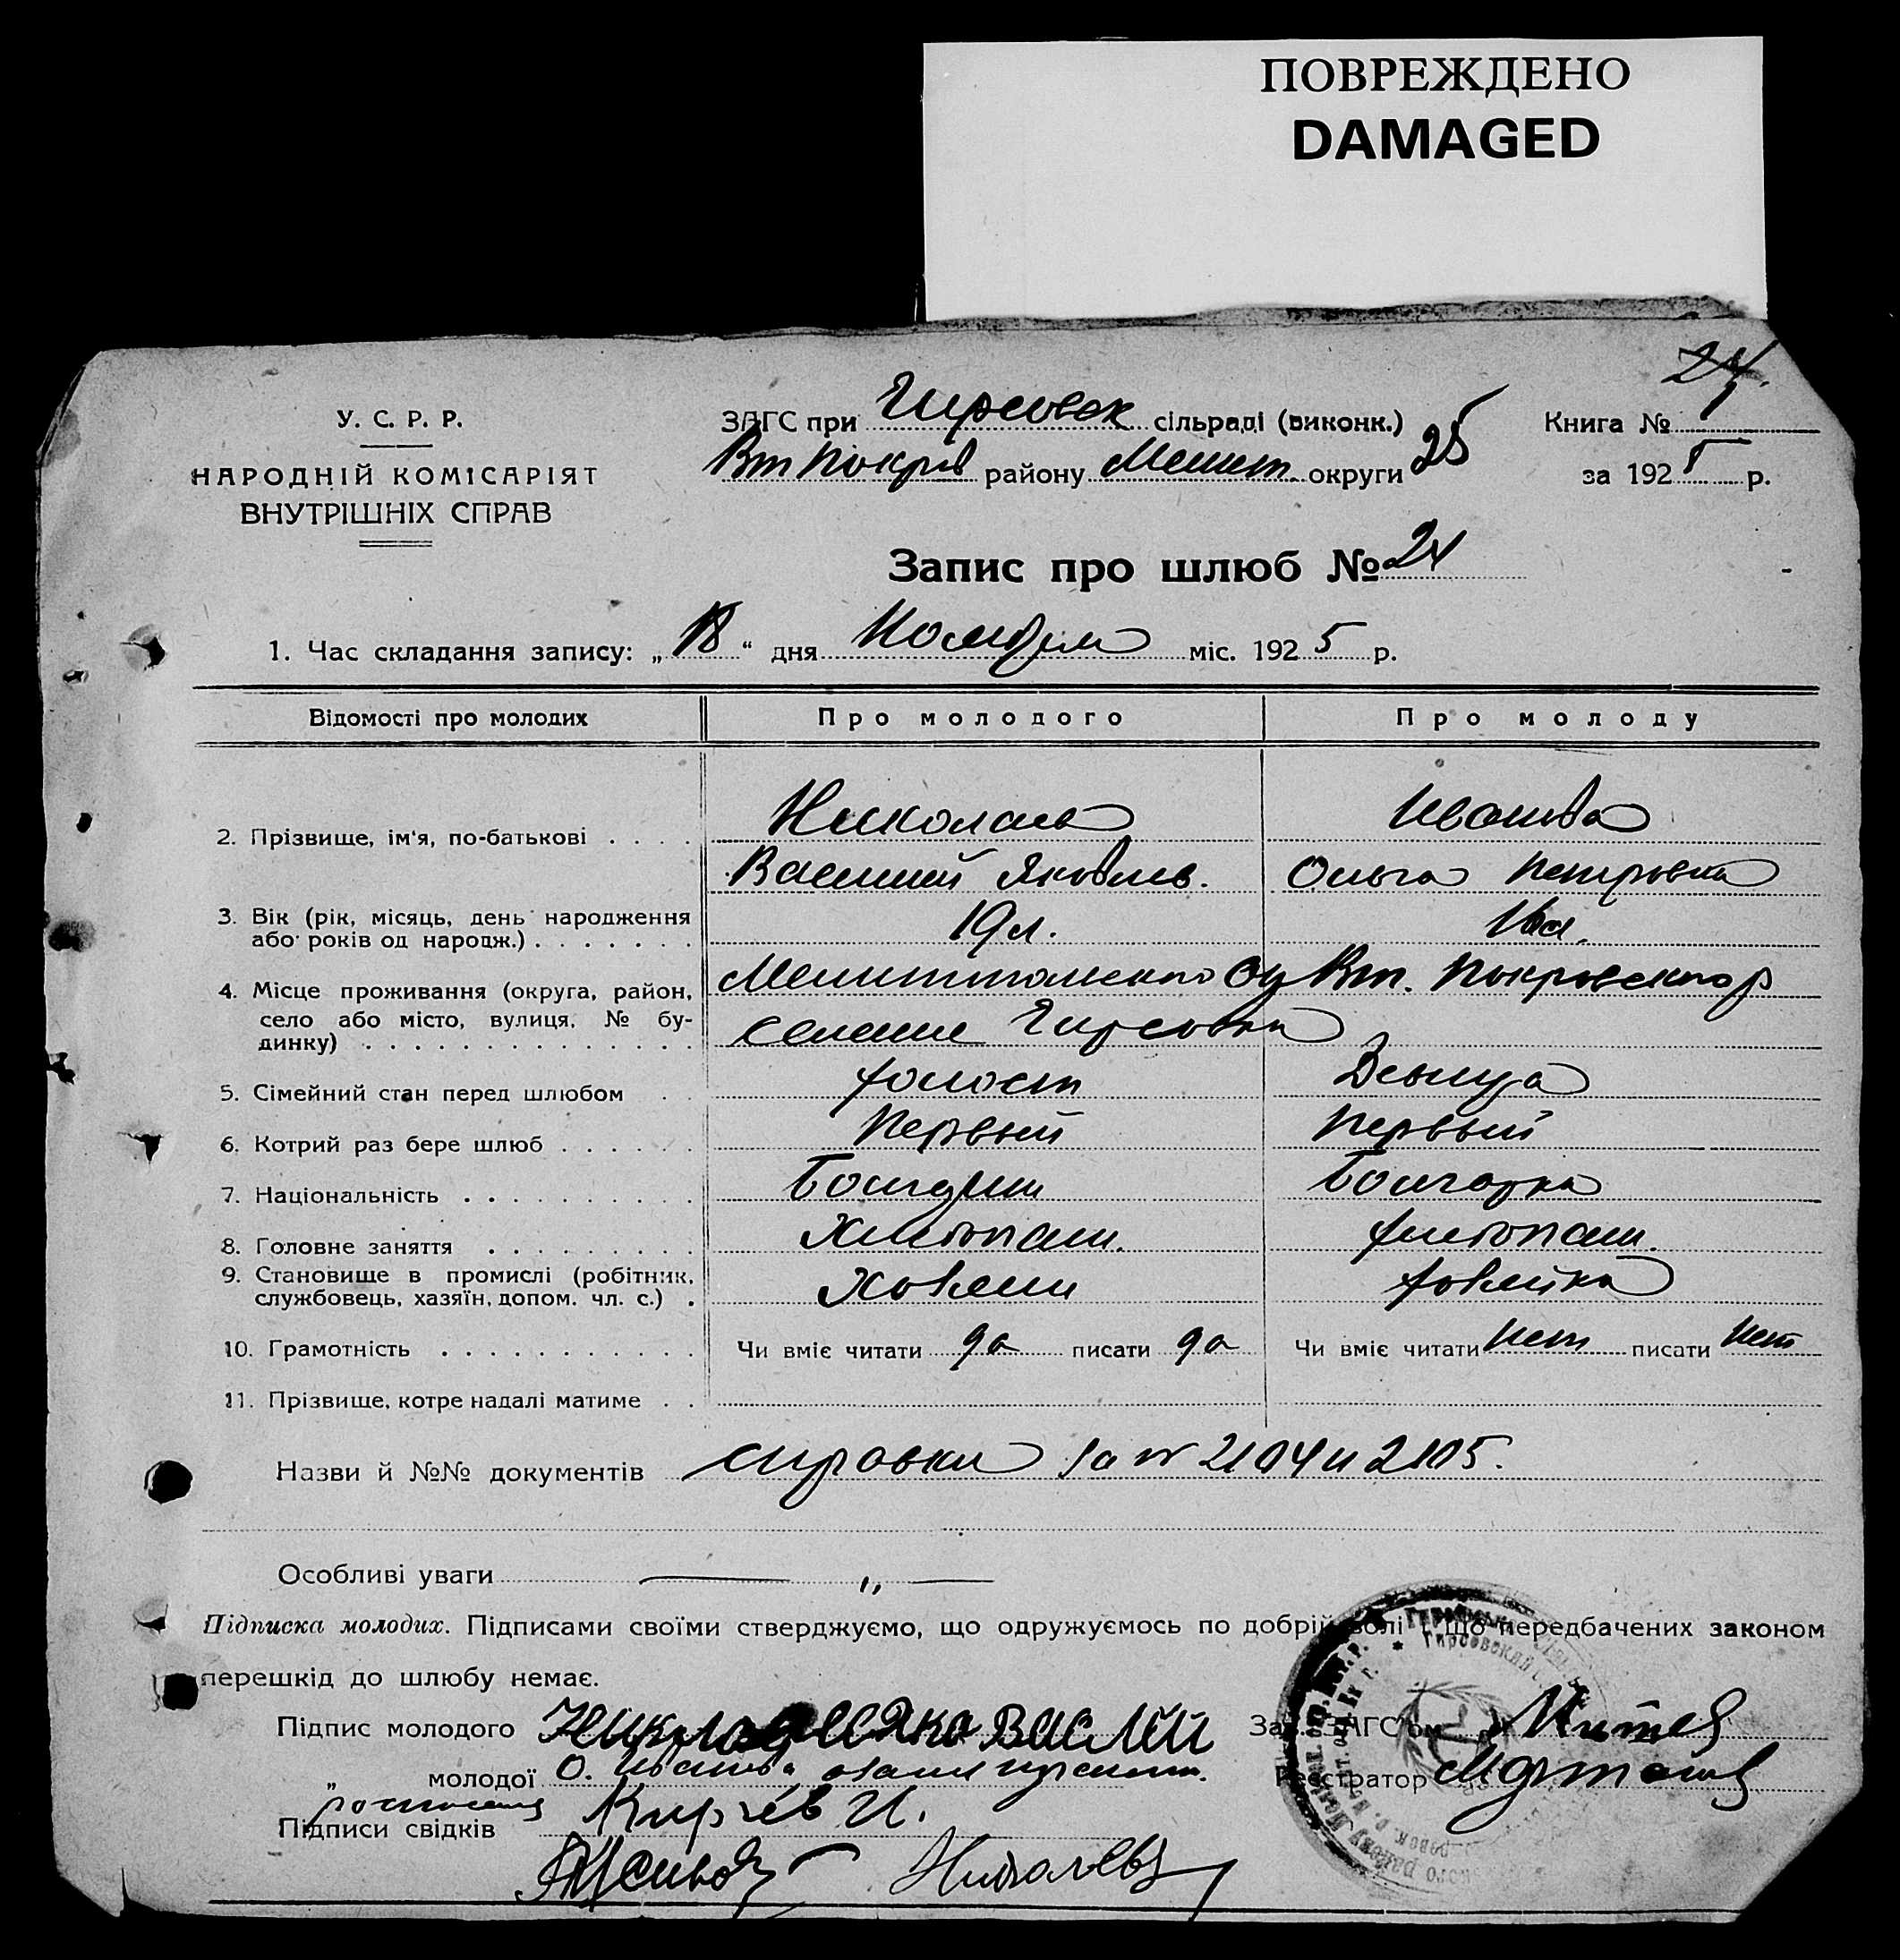 ПОВРЕЖДЕНО
DAMAGED
24.
У. С. Р. Р.
НАРОДНІЙ КОМІСАРІЯТ
ВНУТРІШНІХ СПРАВ
ЗАГС при Гирсовск сільраді (виконк.)
Вт Покров району Мелит. округи 25
Книга № 1
за 1925 р.
Запис про шлюб № 24
1. Час складання запису: „18“ дня Ноября міс. 1925 р.
Відомості про молодих Про молодого Про молоду
2. Прізвище, ім'я, по-батькові . . . . Николаев Иванова
Василий Яковлев. Ольга Петровна
3. Вік (рік, місяць, день народження
або років од народж.) . . . . . . . 19 л.
4. Місце проживання (округа, район,
село або місто, вулиця, № бу-
динку) . . . . . . . . . . . . . .
Мелитопольского Ок Вт. Покровского р
селение Гирсовка
5. Сімейний стан перед шлюбом . . холост Девица
6. Котрий раз бере шлюб . . . . . . Первый Первый
7. Національність . . . . . . . . . . Болгарин Болгарка
8. Головне заняття . . . . . . . . . Хлебопаш. хлебопаш.
9. Становище в промислі (робітник,
службовець, хазяїн, допом. чл. с.) . Хозяин хозяйка
10. Грамотність . . . . . . . . . . . Чи вміє читати да писати да Чи вміє читати нет писати нет
11. Прізвище, котре надалі матиме . .
Назви й №№ документів справки за № 2104 и 2105.
Особливі уваги — „ —
Підписка молодих. Підписами своїми стверджуємо, що одружуємось по добрій волі і що передбачених законом
перешкід до шлюбу немає.
Підпис молодого Василй Зав. ЗАГС'ом Митев
„ молодої О. Иванова Реєстратор
Підписи свідків Киргев И.